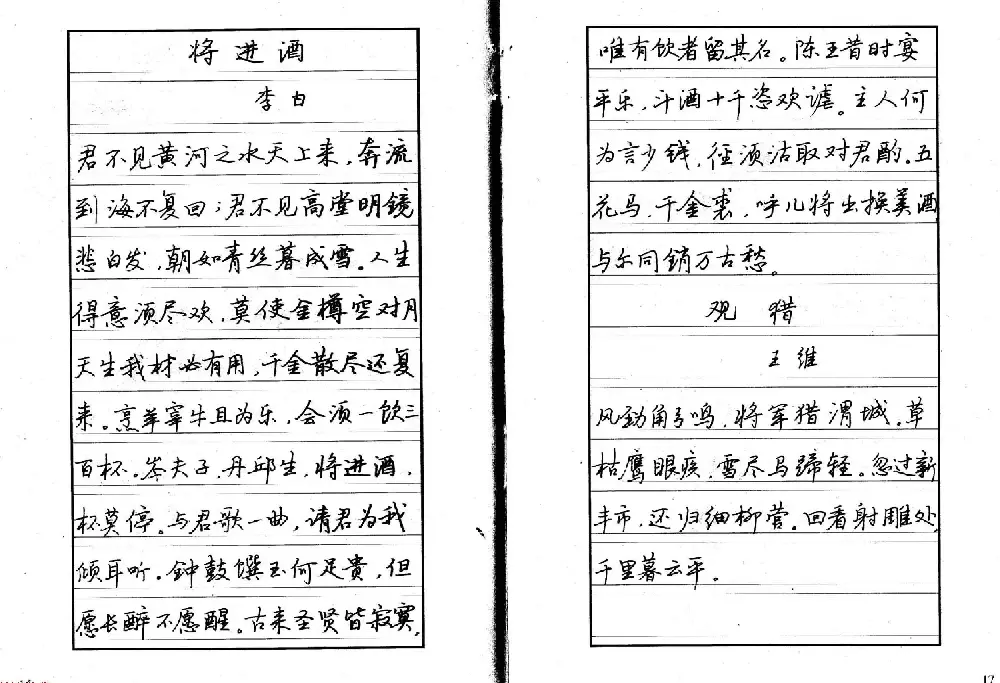 将进酒
李白
君不见黄河之水天上来，奔流
到海不复回；君不见高堂明镜
悲白发，朝如青丝暮成雪。人生
得意须尽欢，莫使金樽空对月
天生我材必有用，千金散尽还复
来。烹羊宰牛且为乐，会须一饮三
百杯。岑夫子，丹邱生，将进酒，
杯莫停。与君歌一曲，请君为我
倾耳听。钟鼓馔玉何足贵，但
愿长醉不愿醒。古来圣贤皆寂寞，
唯有饮者留其名。陈王昔时宴
平乐，斗酒十千恣欢谑。主人何
为言少钱，径须沽取对君酌。五
花马，千金裘，呼儿将出换美酒
与尔同销万古愁。
观猎
王维
风劲角弓鸣，将军猎渭城。草
枯鹰眼疾，雪尽马蹄轻。忽过新
丰市，还归细柳营。回看射雕处
千里暮云平。
17